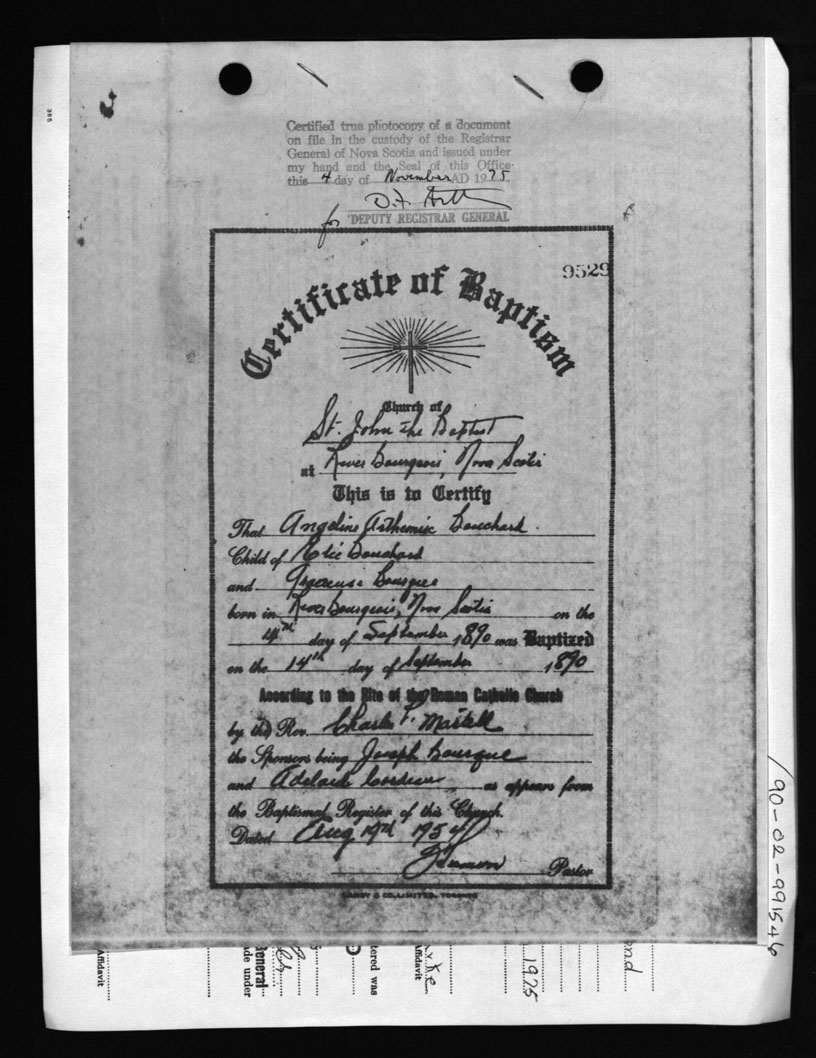 Certified true photocopy of a document
on file in the custody of the Registrar
General of Nova Scotia and issued under
my hand and the Seal of this Office
this 4 day of November AD 1975.
for DEPUTY REGISTRAR GENERAL
9529
Certificate of Baptism
Church of
St. John The Baptist
at River Bourgeois, Nova Scotia
This is to Certify
That Angeline Arthemise Bouchard
Child of Elie Bouchard
and Bourque
born in River Bourgeois, Nova Scotia on the
14th day of September 1890 was Baptized
on the 14th day of September 1890
According to the Rite of the Roman Catholic Church
by the Rev. Charles F. Martell
the Sponsors being Joseph Bourque
and Adelaide as appears from
the Baptismal Register of this Church.
Dated Aug 19th 1954
Pastor
& CO. LIMITED, TORONTO
190-02-991546
Affidavit
General
de under
tered was
Affidavit
1975
ond